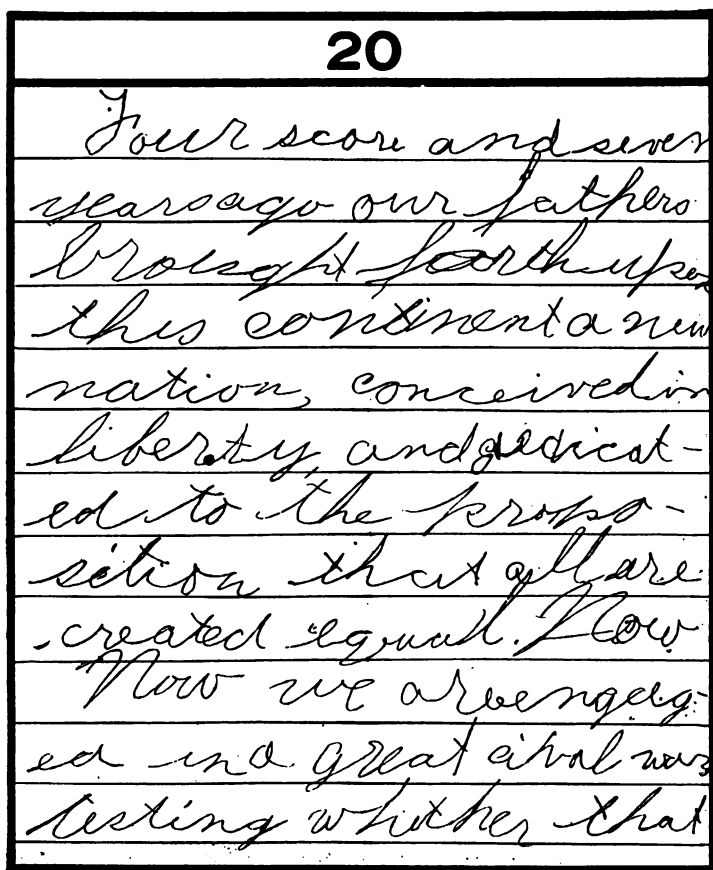 20
Four score and seven
years ago our fathers
brought forth upon
this continent a new
nation, conceived in
liberty, and dedicat-
ed to the propo-
sition that all are
created equal. Now
Now we are engag-
ed in a great cival war
testing whether that